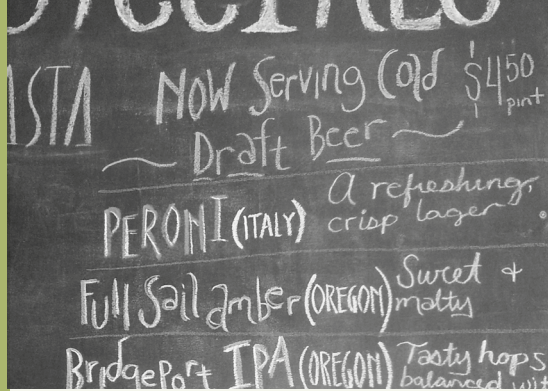 ASTA
Now Serving Cold $4.50 pint
Draft Beer
PERONI (ITALY) A refreshing, crisp lager
Full Sail amber (OREGON) Sweet + malty
BridgePort IPA (OREGON) Tasty hops balanced